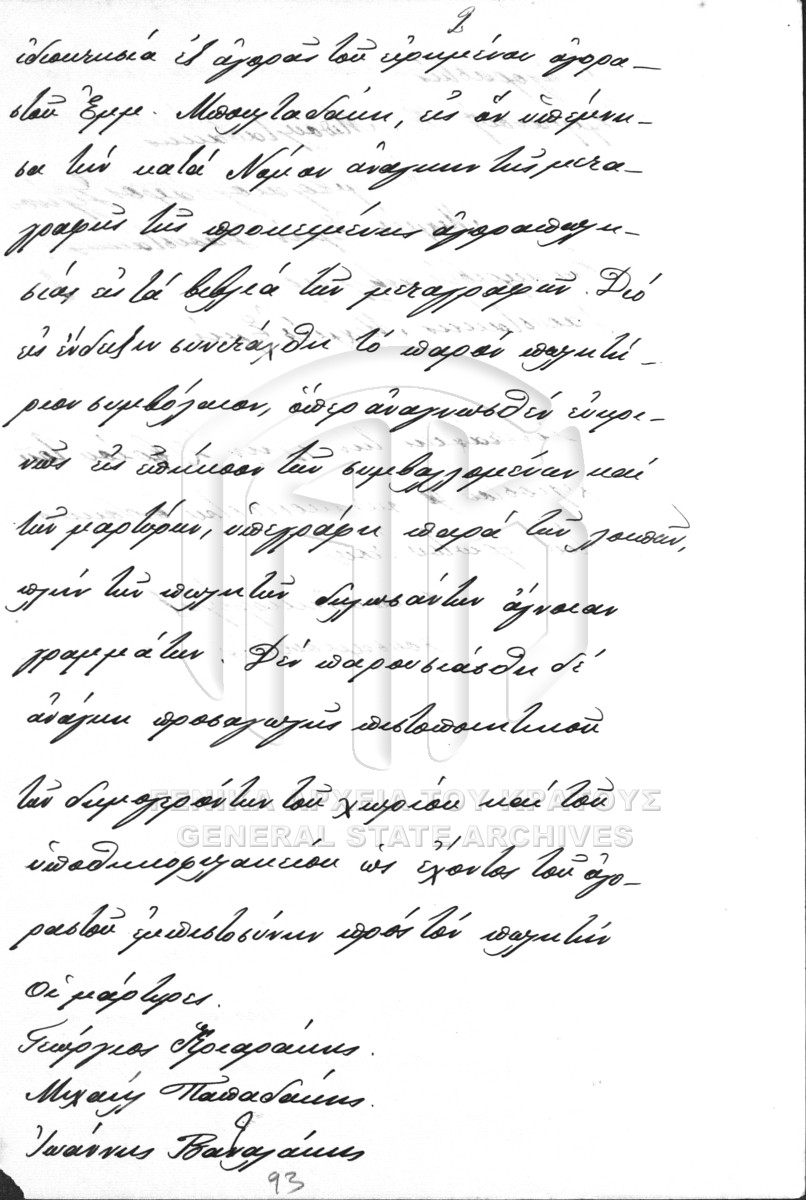 2
ἰδιοκτησία ἐξ ἀγορᾶς τοῦ εἰρημένου ἀγορα-
στοῦ Ἐμμ. Μπολταδάκη, εἰς ὃν ὑπέμνη-
σα τὴν κατὰ Νόμον ἀνάγκην τῆς μετα-
γραφῆς τῆς προκειμένης ἀγοραπωλη-
σίας εἰς τὰ βιβλία τῶν μεταγραφῶν. Διὸ
εἰς ἔνδειξιν συνετάχθη τὸ παρὸν πωλητή-
ριον συμβόλαιον, ὅπερ ἀναγνωσθὲν εὐκρι-
νῶς εἰς ἐπήκοον τῶν συμβαλλομένων καὶ
τῶν μαρτύρων, ὑπεγράφη παρὰ τῶν λοιπῶν,
πλὴν τῶν πωλητῶν δηλωσάντων ἄγνοιαν
γραμμάτων. Δὲν παρουσιάσθη δὲ
ἀνάγκη προσαγωγῆς πιστοποιητικοῦ
τῶν δημογερόντων τοῦ χωρίου καὶ τοῦ
ὑποθηκοφυλακείου ὡς ἔχοντος τοῦ ἀγο-
ραστοῦ ἐμπιστοσύνην πρὸς τὸν πωλητὴν
Οἱ μάρτυρες.
Γεώργιος
Μιχαὴλ Παπαδάκης.
Ἰωάννης
93
ΓΕΝΙΚΑ ΑΡΧΕΙΑ ΤΟΥ ΚΡΑΤΟΥΣ
GENERAL STATE ARCHIVES